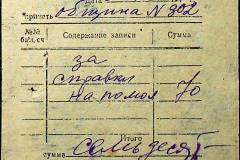 Дата
принять община N 302
№№ бал. сч Содержание записи Сумма
за
справки
на помол 70
Итого
сумма семьдесят